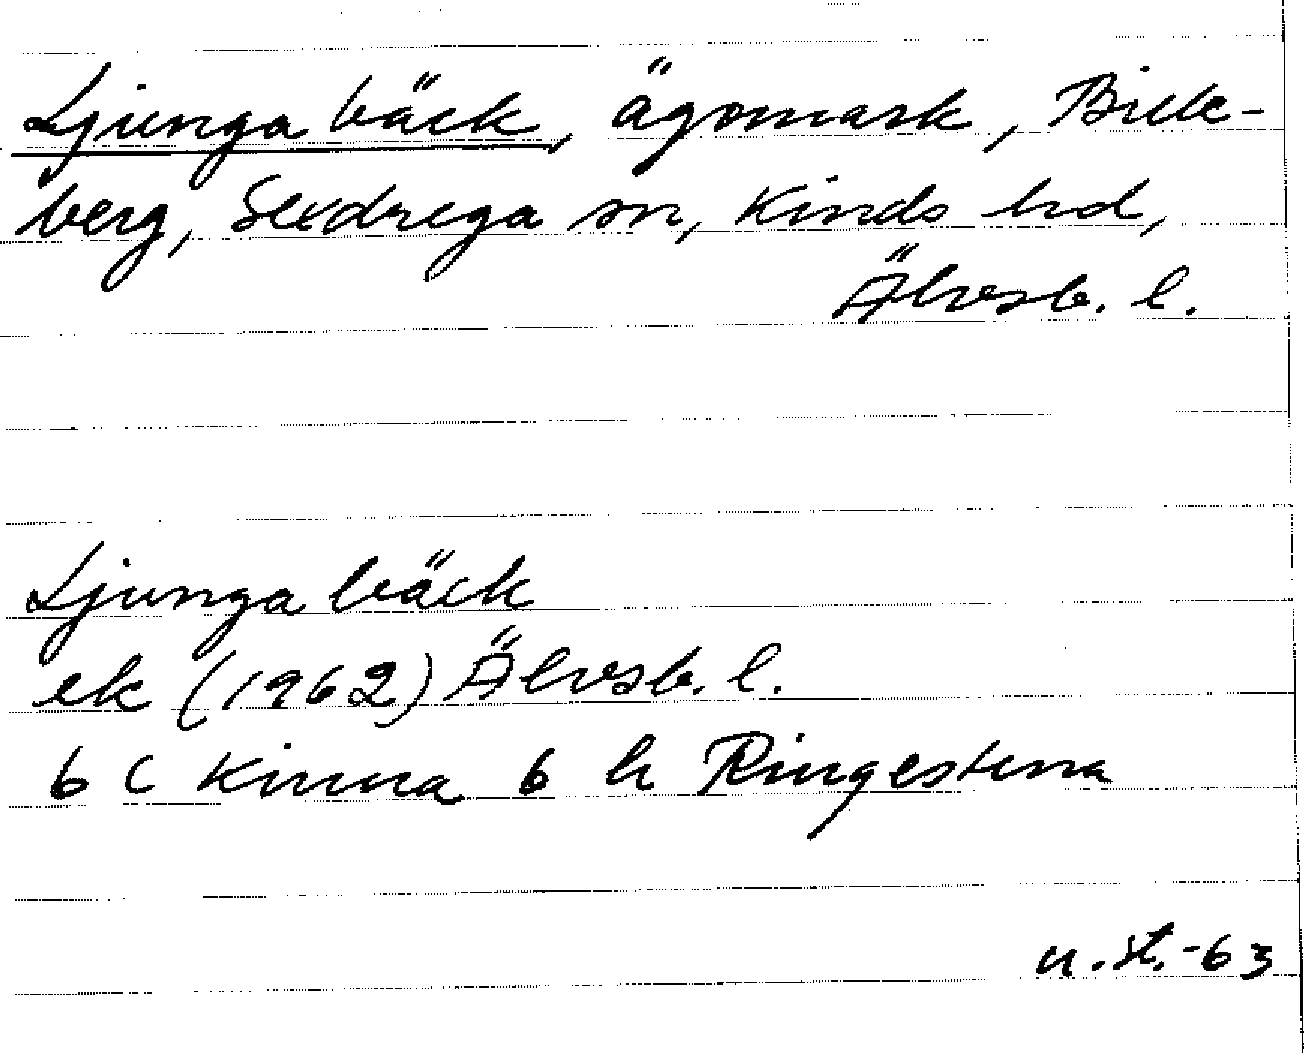 Ljungabäck, ägomark, Bille-
berg, Sexdrega sn, Kinds hd,
Älvsb. l.
Ljungabäck
ek (1962) Älvsb. l.
6 C Kinna 6 h Ringestena
u. st. -63